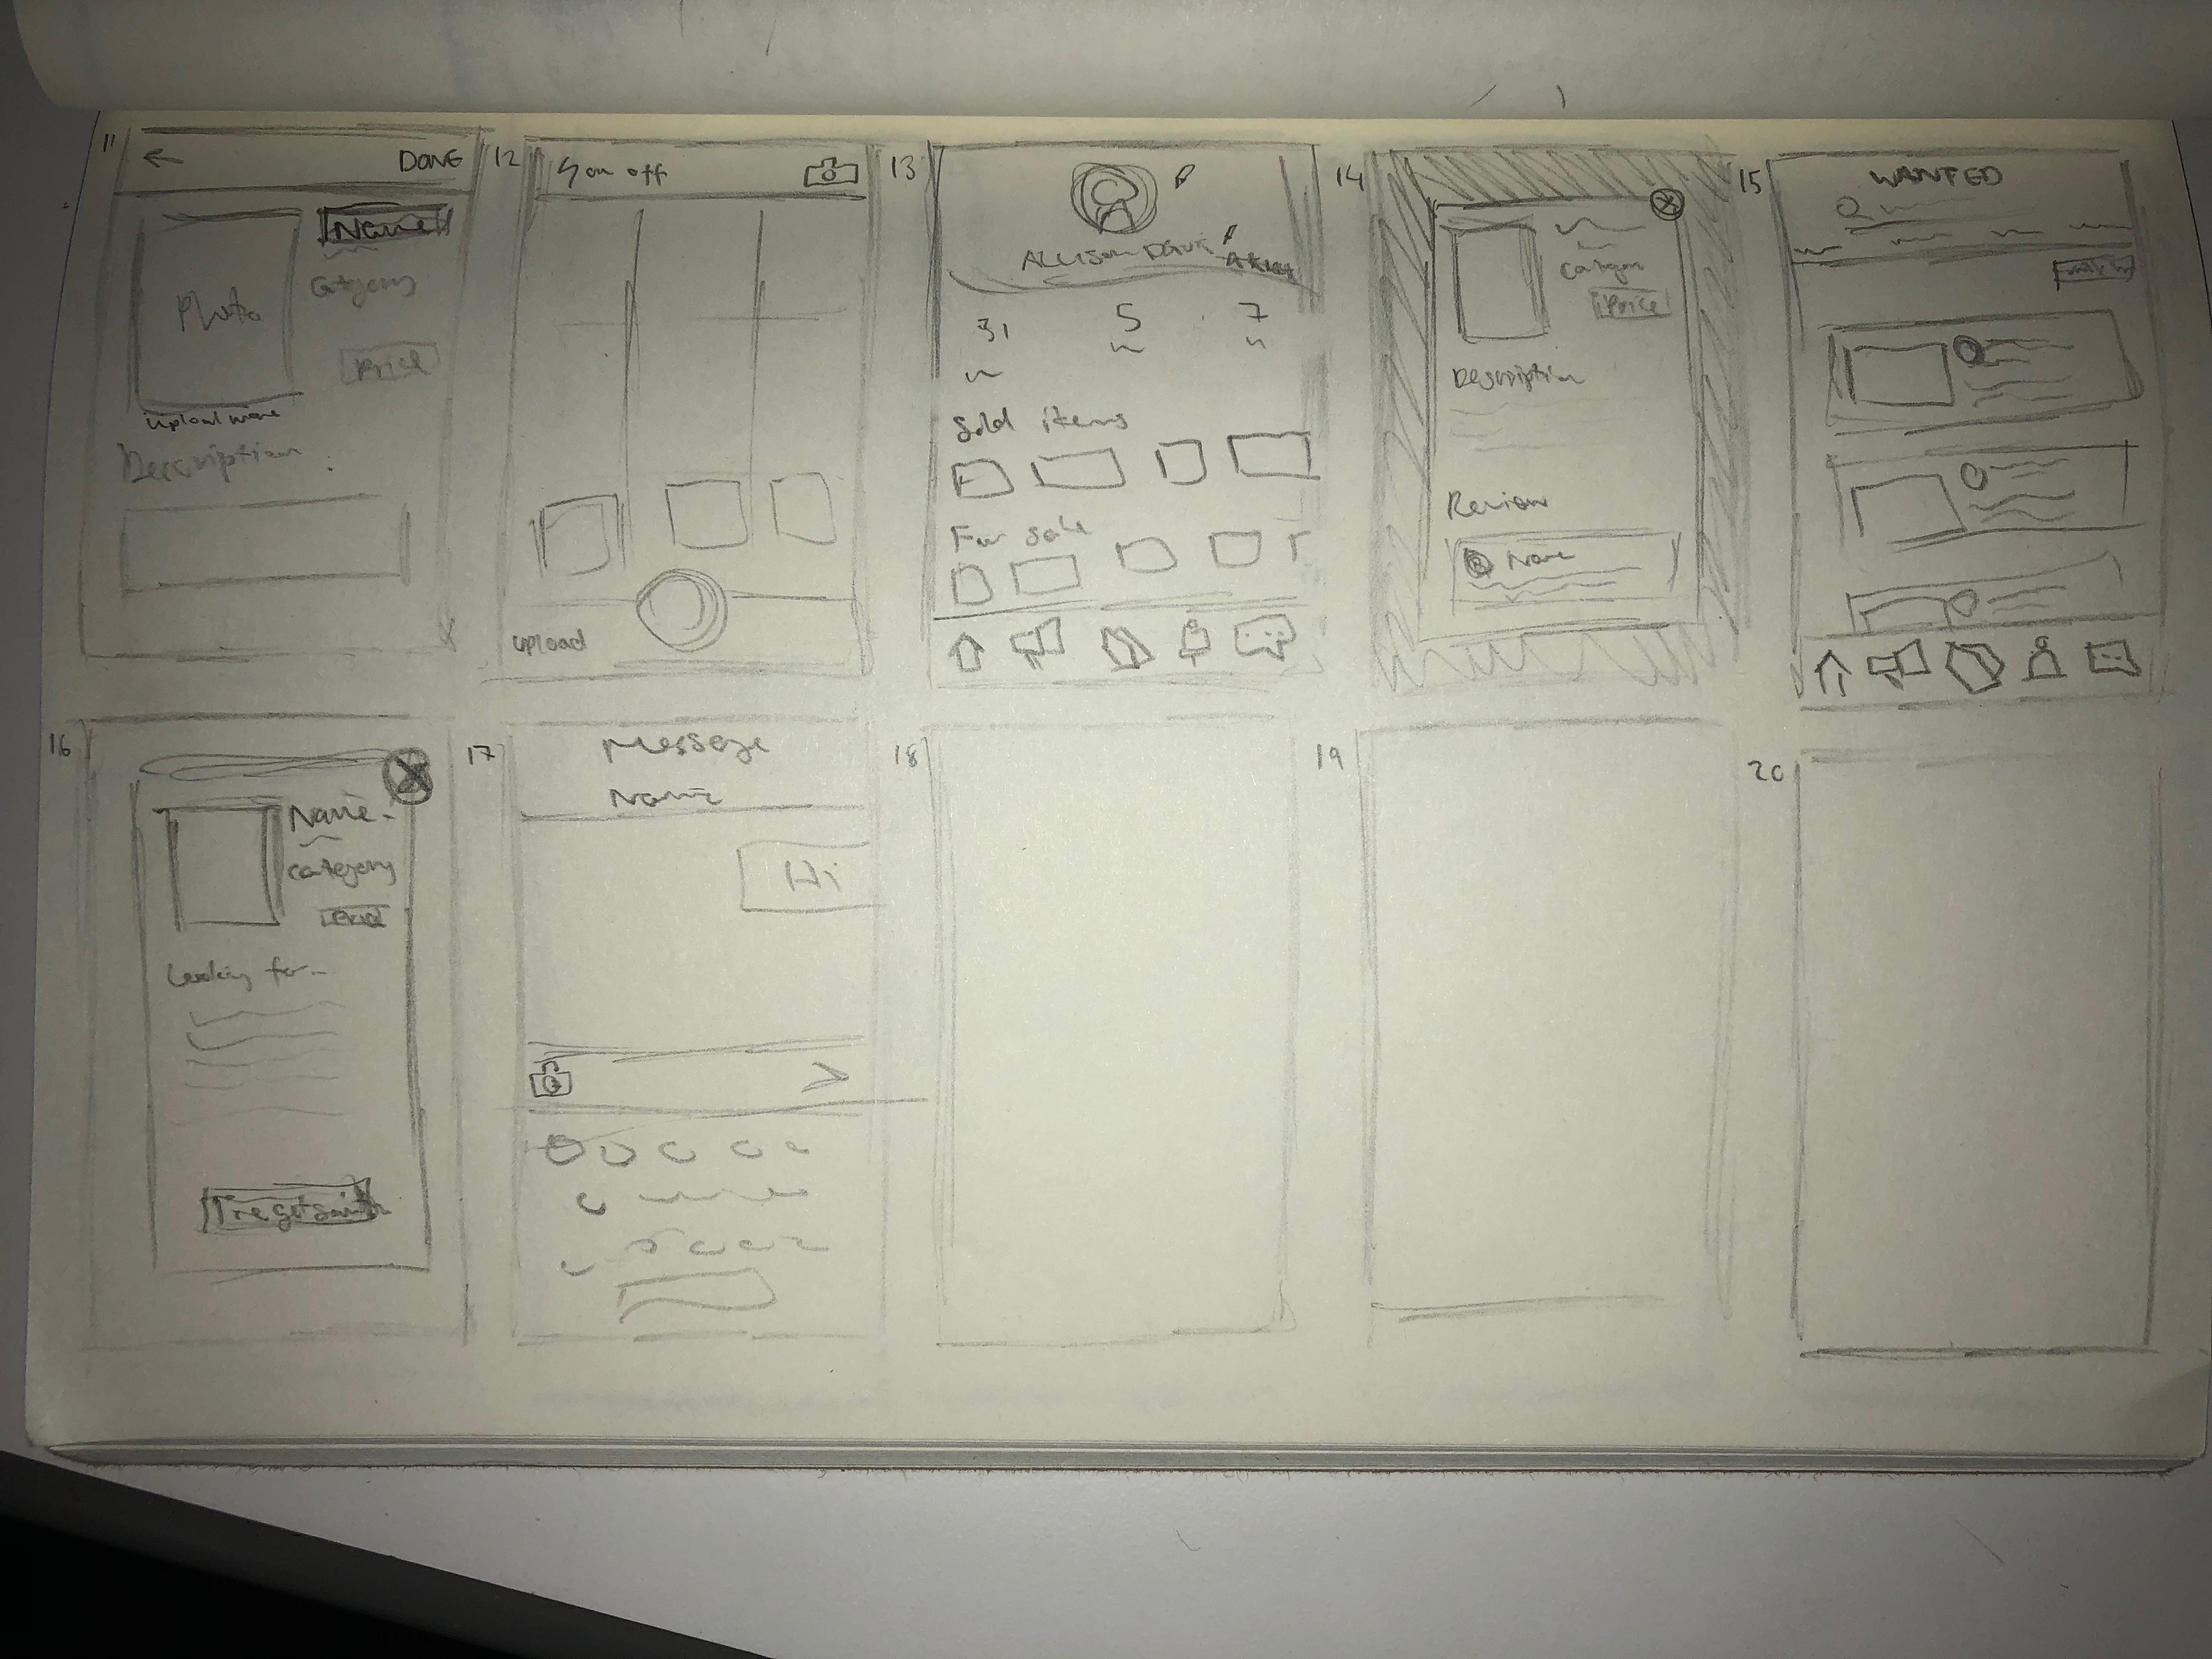 11
← DONE
Photo
Name
Category
Price
Upload more
Description:
12
upload
13
31 5 7
Sold items
For Sale
14
Category
Price
Description
Review
Name
15
WANTED
16
Name
Category
Looking for
17
Message
Name
Hi
18
19
20